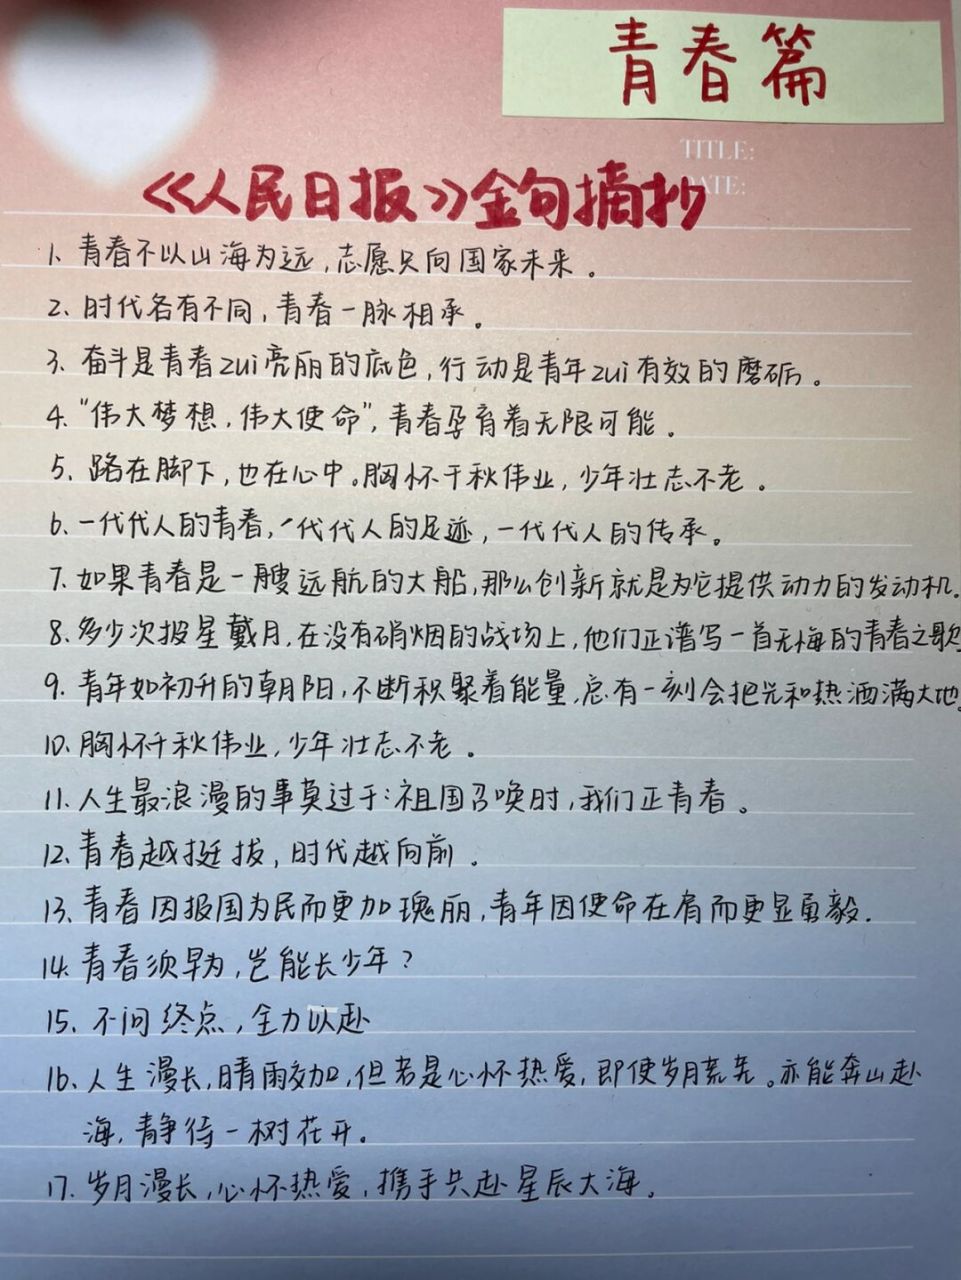 青春篇
TITLE:
DATE:
《人民日报》金句摘抄
1. 青春不以山海为远,志愿只向国家未来。
2. 时代各有不同,青春一脉相承。
3. 奋斗是青春zui亮丽的底色,行动是青年zui有效的磨砺。
4. “伟大梦想,伟大使命”,青春孕育着无限可能。
5. 路在脚下,也在心中。胸怀千秋伟业,少年壮志不老。
6. 一代代人的青春,一代代人的足迹,一代代人的传承。
7. 如果青春是一艘远航的大船,那么创新就是为它提供动力的发动机.
8. 多少次披星戴月,在没有硝烟的战场上,他们正谱写一首无悔的青春之歌
9. 青年如初升的朝阳,不断积聚着能量,总有一刻会把光和热洒满大地。
10. 胸怀千秋伟业,少年壮志不老。
11. 人生最浪漫的事莫过于:祖国召唤时,我们正青春。
12. 青春越挺拔,时代越向前.
13. 青春因报国为民而更加瑰丽,青年因使命在肩而更显勇毅.
14. 青春须早为,岂能长少年?
15. 不问终点,全力以赴
16. 人生漫长,晴雨交加,但若是心怀热爱,即使岁月荒芜。亦能奔山赴
海,静待一树花开.
17. 岁月漫长,心怀热爱,携手共赴星辰大海。